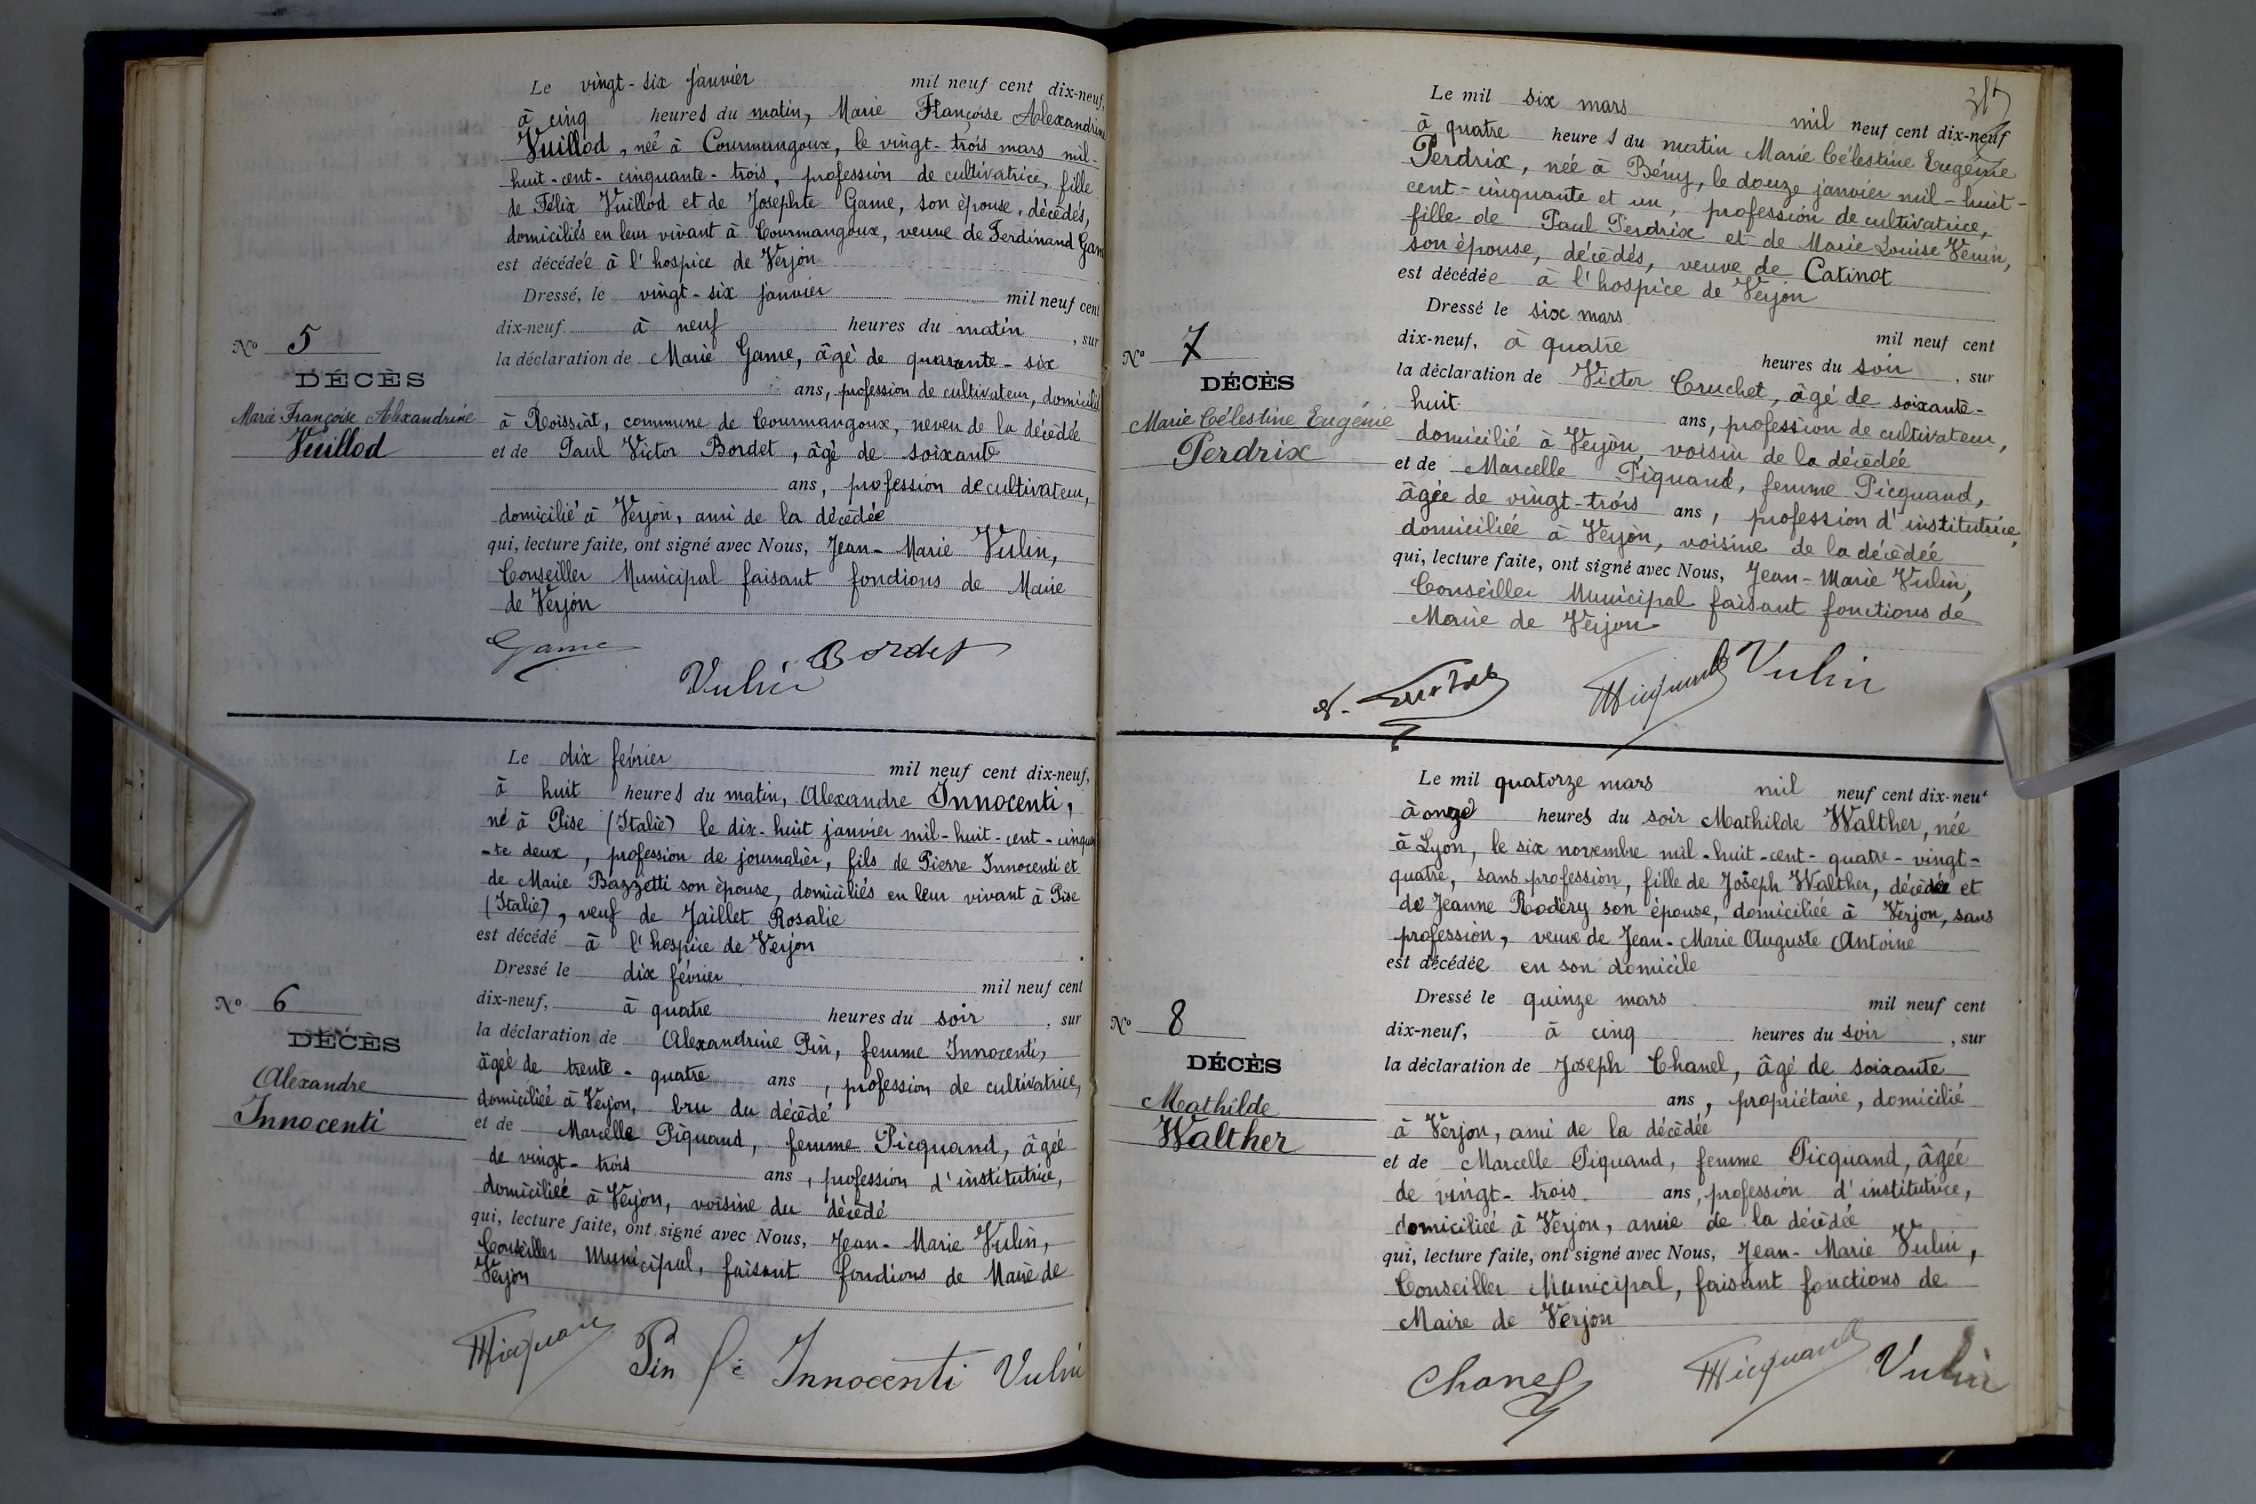 Le vingt-six janvier mil neuf cent dix-neuf,
à cinq heures du matin, Marie Françoise Alexandrine
Vuillod, née à Courmangoux, le vingt-trois mars mil-
huit-cent-cinquante-trois, profession de cultivatrice, fille
de Félix Vuillod et de Josephte Game, son épouse, décédés,
domiciliés en leur vivant à Courmangoux, veuve de Ferdinand Gam
est décédée à l'hospice de Verjon
Dressé, le vingt-six janvier mil neuf cent
dix-neuf à neuf heures du matin, sur
la déclaration de Marie Game, âgé de quarante-six
ans, profession de cultivateur, domicilié
à Roissiat, commune de Courmangoux, neveu de la décédée
et de Paul Victor Bordet, âgé de soixante
ans, profession de cultivateur,
domicilié à Verjon, ami de la décédée
qui, lecture faite, ont signé avec Nous, Jean-Marie Vulin,
Conseiller Municipal faisant fonctions de Maire
de Verjon
Game Vulin Bordet
No 5
DÉCÈS
Marie Françoise Alexandrine
Vuillod
Le dix février mil neuf cent dix-neuf,
à huit heures du matin, Alexandre Innocenti,
né à Pise (Italie) le dix-huit janvier mil-huit-cent-cinquan
-te deux, profession de journalier, fils de Pierre Innocenti et
de Marie Bazzetti son épouse, domiciliés en leur vivant à Pise
(Italie), veuf de Jaillet Rosalie
est décédé à l'hospice de Verjon
Dressé le dix février mil neuf cent
dix-neuf, à quatre heures du soir, sur
la déclaration de Alexandrine Pin, femme Innocenti,
âgée de trente-quatre ans, profession de cultivatrice,
domiciliée à Verjon, bru du décédé
et de Marcelle Piquand, femme Picquand, âgée
de vingt-trois ans, profession d'institutrice,
domiciliée à Verjon, voisine du décédé
qui, lecture faite, ont signé avec Nous, Jean-Marie Vulin,
Conseiller Municipal, faisant fonctions de Maire de
Verjon
MPicquand Pin fe Innocenti Vulin
No 6
DÉCÈS
Alexandre
Innocenti
Le mil six mars mil neuf cent dix-neuf
à quatre heures du matin Marie Célestine Eugénie
Perdrix, née à Bény, le douze janvier mil-huit-
cent-cinquante et un, profession de cultivatrice,
fille de Paul Perdrix et de Marie Louise Venin,
son épouse, décédés, veuve de Catinot
est décédée à l'hospice de Verjon
Dressé le six mars mil neuf cent
dix-neuf, à quatre heures du soir, sur
la déclaration de Victor Cruchet, âgé de soixante-
huit ans, profession de cultivateur,
domicilié à Verjon, voisin de la décédée
et de Marcelle Piquand, femme Picquand,
âgée de vingt-trois ans, profession d'institutrice,
domiciliée à Verjon, voisine de la décédée
qui, lecture faite, ont signé avec Nous, Jean-Marie Vulin,
Conseiller Municipal faisant fonctions de
Maire de Verjon
MPicquand Vulin
No 7
DÉCÈS
Marie Célestine Eugénie
Perdrix
Le mil quatorze mars mil neuf cent dix-neuf
à onze heures du soir Mathilde Walther, née
à Lyon, le six novembre mil-huit-cent-quatre-vingt-
quatre, sans profession, fille de Joseph Walther, décédée et
de Jeanne Rodéry son épouse, domiciliée à Verjon, sans
profession, veuve de Jean-Marie Auguste Antoine
est décédée en son domicile
Dressé le quinze mars mil neuf cent
dix-neuf, à cinq heures du soir, sur
la déclaration de Joseph Chanel, âgé de soixante
ans, propriétaire, domicilié
à Verjon, ami de la décédée
et de Marcelle Piquand, femme Picquand, âgée
de vingt-trois ans, profession d'institutrice,
domiciliée à Verjon, amie de la décédée
qui, lecture faite, ont signé avec Nous, Jean-Marie Vulin,
Conseiller Municipal, faisant fonctions de
Maire de Verjon
Chanel MPicquand Vulin
No 8
DÉCÈS
Mathilde
Walther